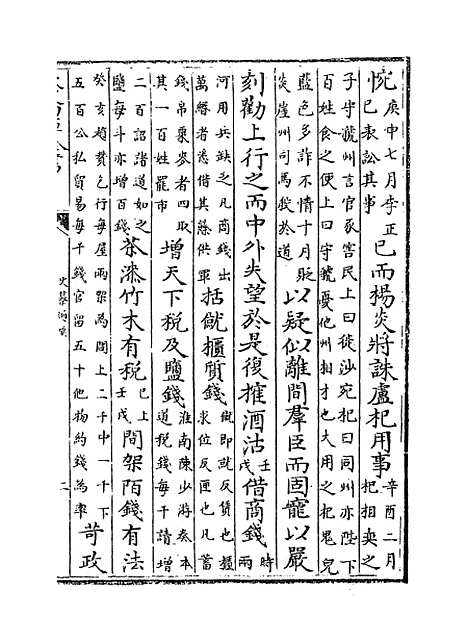 悦庚申七月李正已表訟其事已而楊炎將誅盧杞用事辛酉二月杞相奕之
子守虢州言官豕害民上曰徙沙宛杞曰同州亦陛下百姓食之便上曰守虢憂他州相才也大用之杞鬼皃
藍色多詐不情十月貶炎崖州司馬殺於道以疑似離間羣臣而固寵以嚴
刻勸上行之而中外失望於是復搉酒沽壬戌借商錢時兩
河用兵缺乏凡商錢出萬緡者悉借其餘供軍括僦櫃質錢僦即就反賃也櫃求位反匣也凡蓄
錢帛粟麥者四取其一百姓罷市增天下税及鹽錢淮南陳少游奏本道税錢每千請增
二百詔諸道如之鹽每斗亦增百錢茶漆竹木有税已上壬戌間架陌錢有法
癸亥趙贊乞行每屋兩架為間上二千中一千下五百公私貿易每千錢官留五十他物約錢為率苛政
史纂通要
二